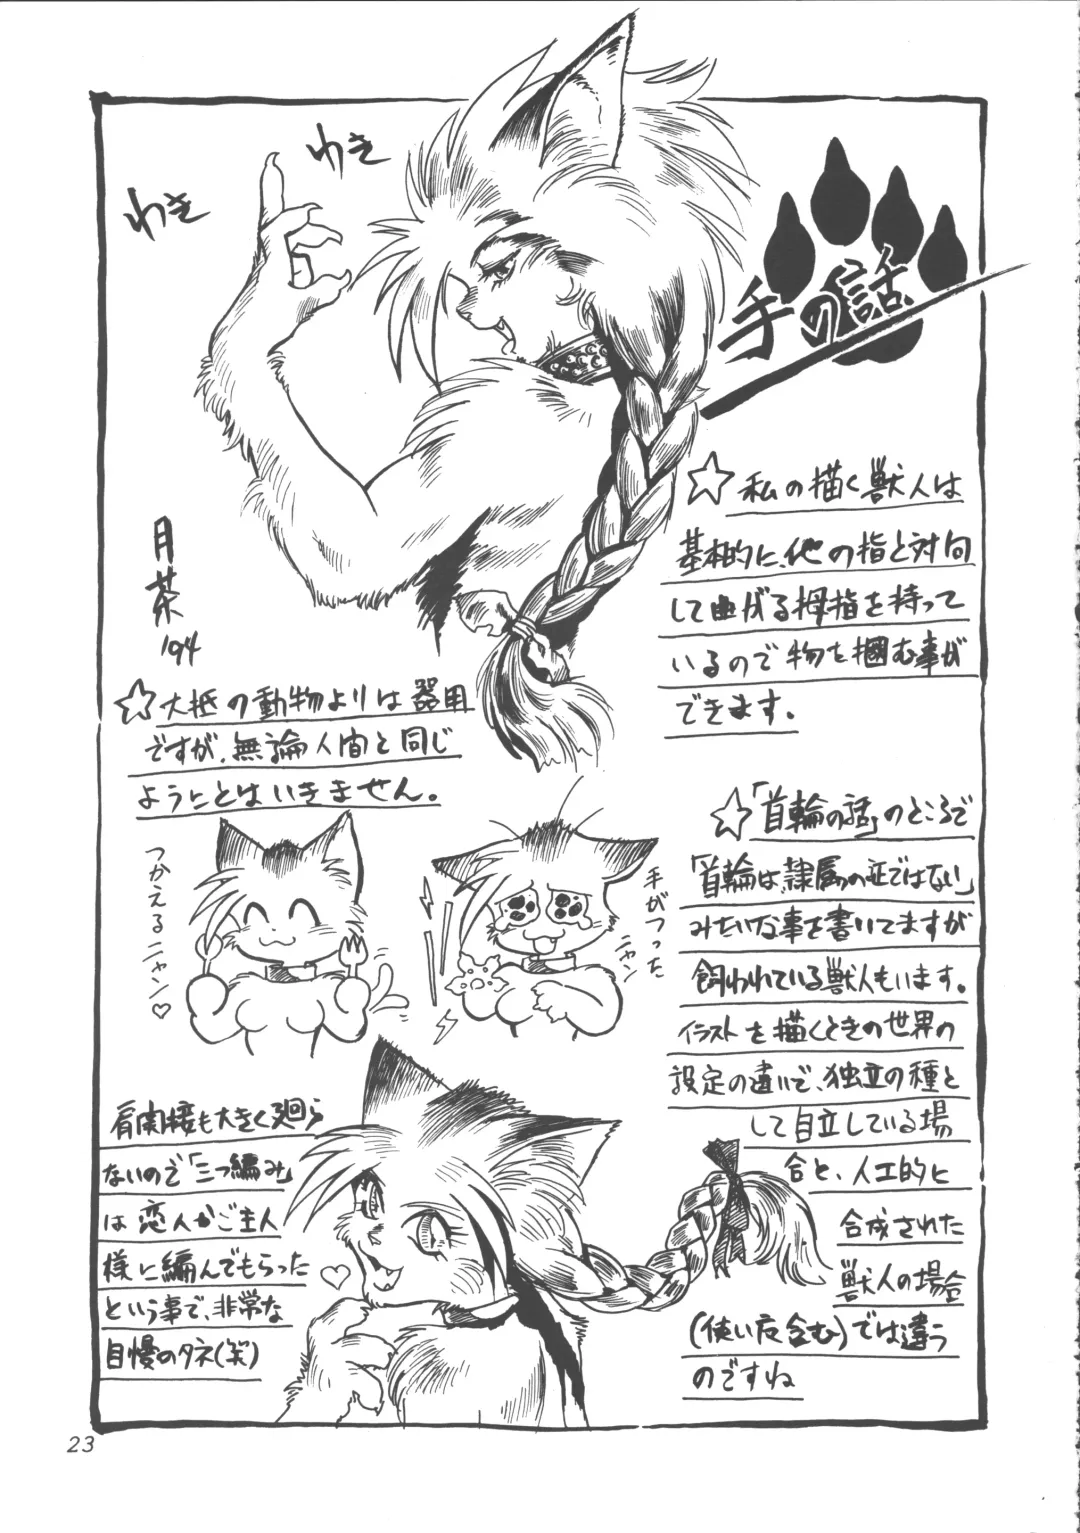 わき
わき
手の話
☆私の描く獣人は
基本的に、他の指と対向
して曲がる拇指を持って
いるので物を掴む事が
できます。
月茶
'94
☆大抵の動物よりは器用
ですが、無論人間と同じ
ようにとはいきません。
つかえるニャン♡
手がつったニャン
☆「首輪の話」のところで
「首輪は、隷属の証ではない」
みたいな事を書いてますが
飼われている獣人もいます。
イラストを描くときの世界の
設定の違いで、独立の種と
して自立している場
合と、人工的に
合成された
獣人の場合
(使い魔含む)では違う
のですね
肩関接も大きく廻ら
ないので「三つ編み」
は恋人かご主人
様に編んでもらった
という事で、非常な
自慢のタネ(笑)
23